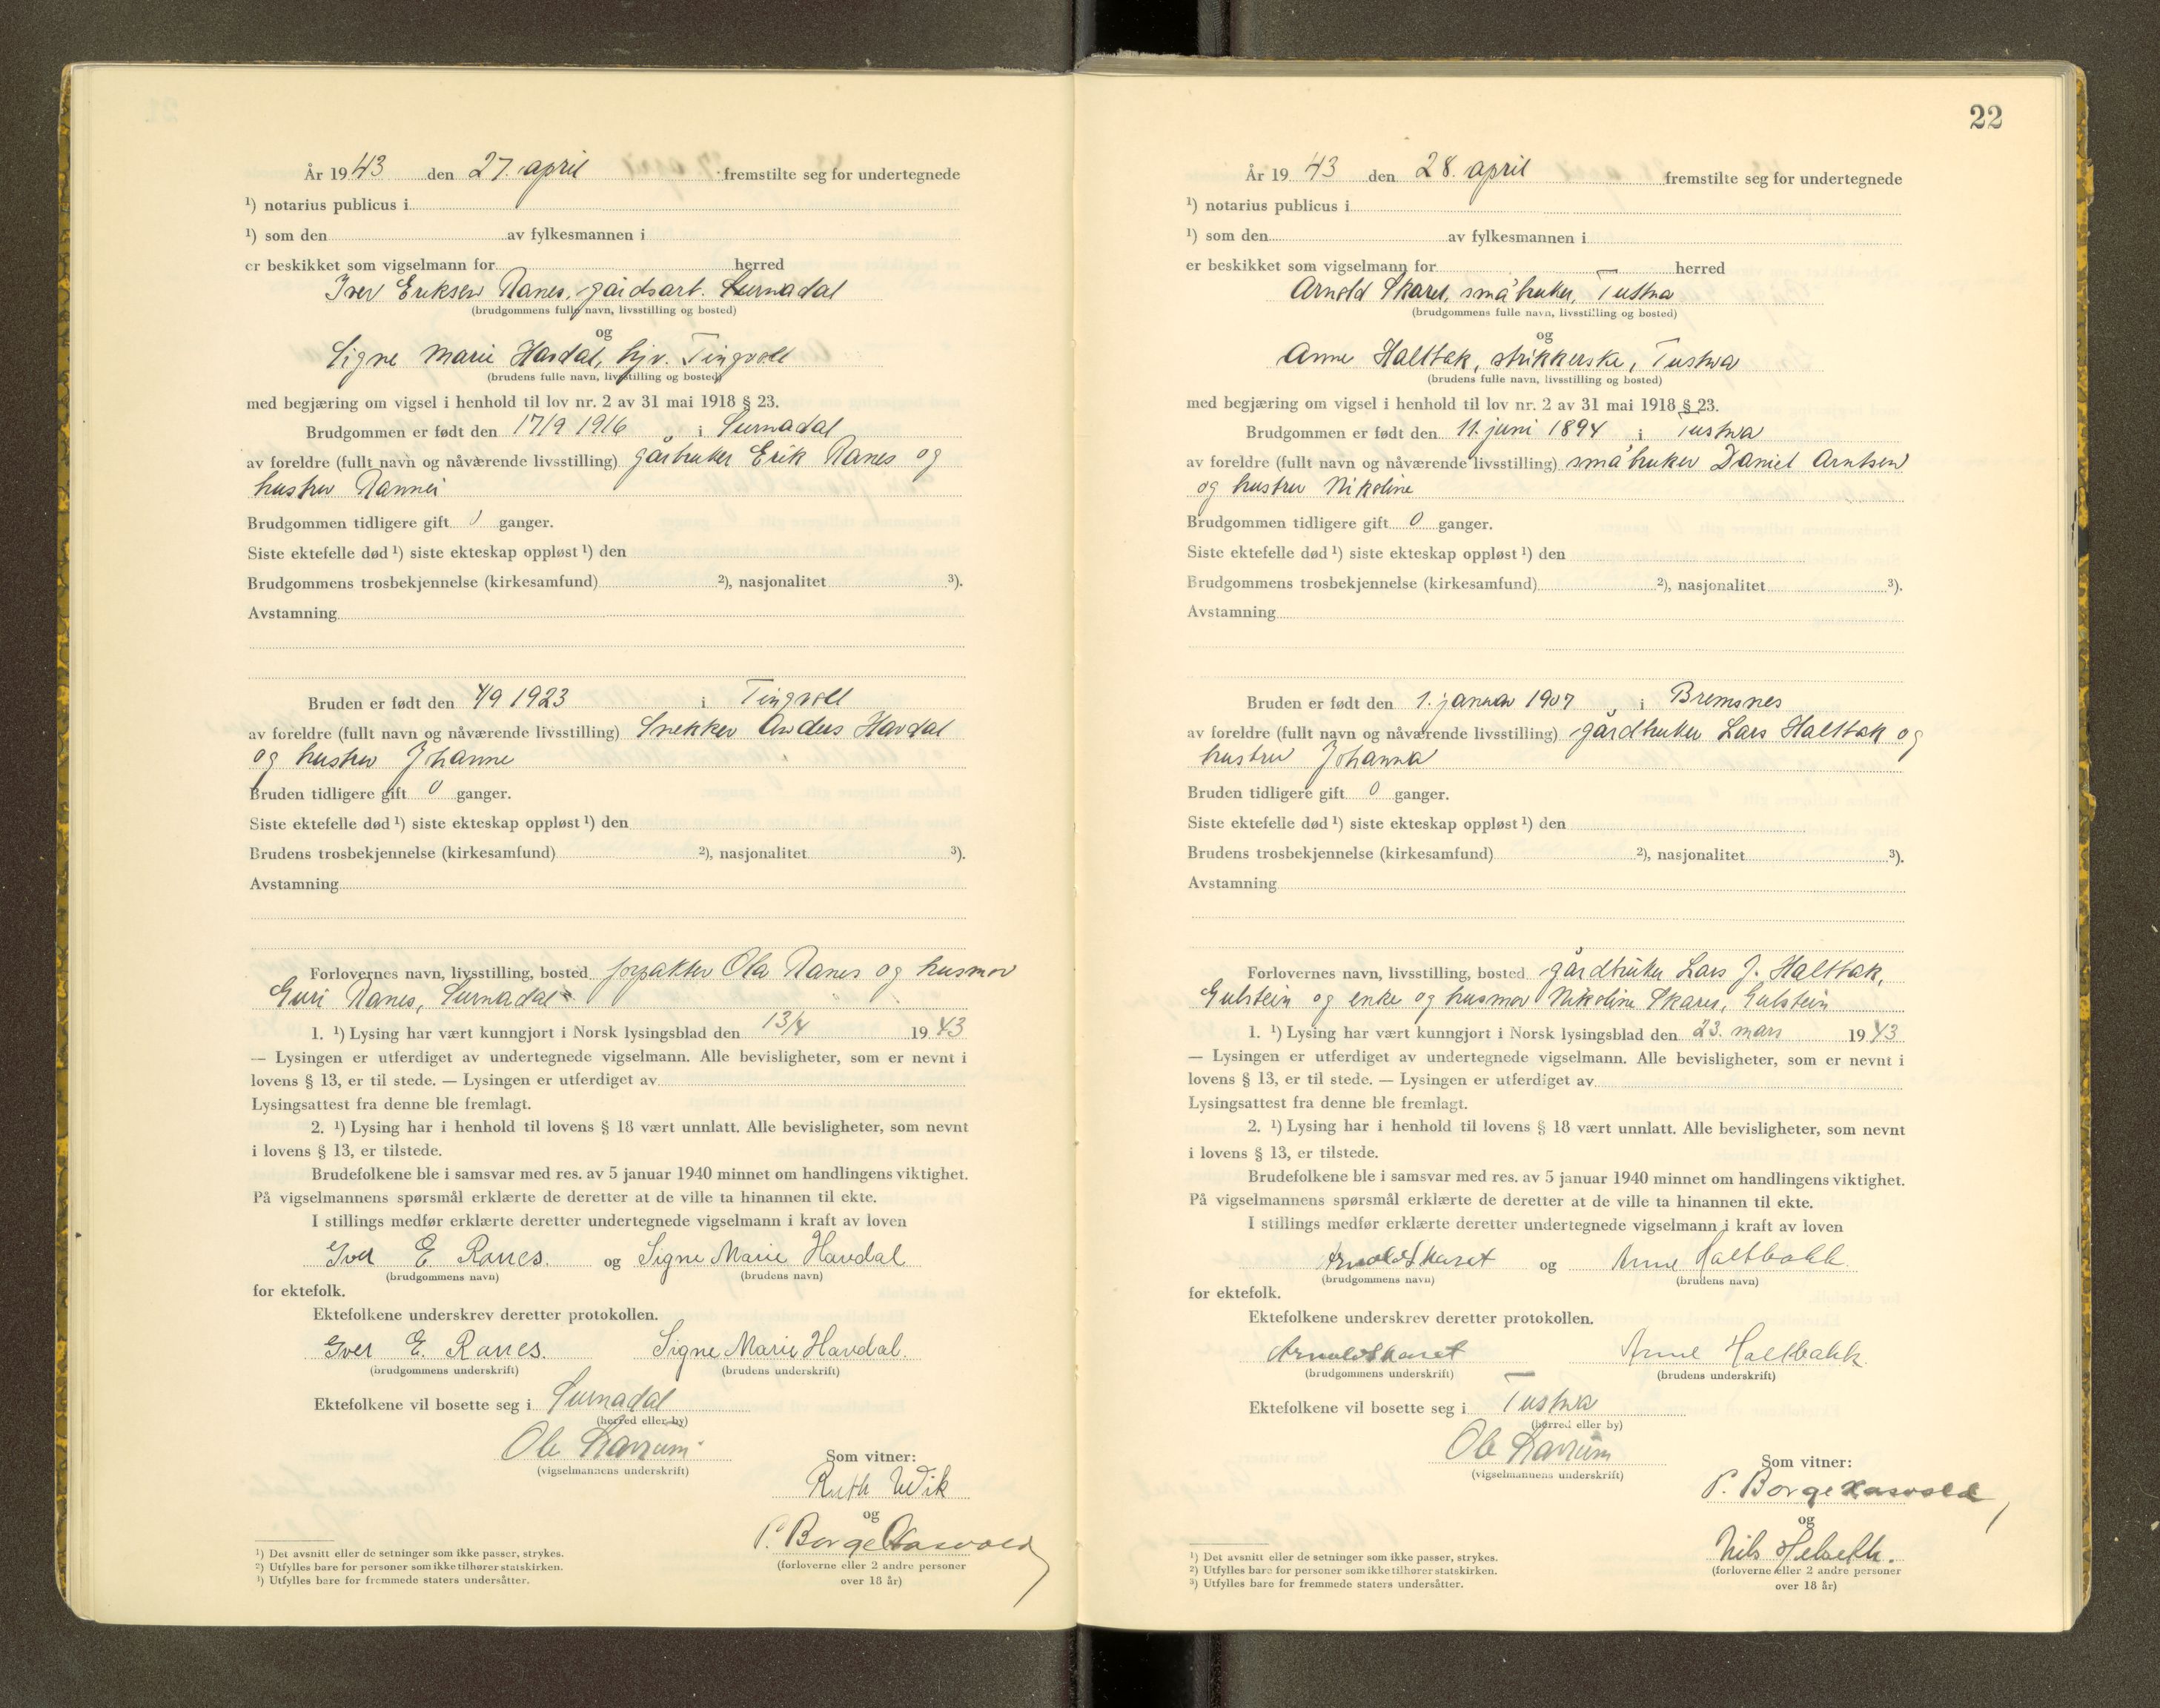 År 1943 den 27. april fremstilte seg for undertegnede
¹) notarius publicus i
¹) som den av fylkesmannen i
er beskikket som vigselmann for herred
Iver Eriksen Ranes, gårdsarb. Surnadal
(brudgommens fulle navn, livsstilling og bosted)
og
Signe Marie Havdal, hjv. Tingvoll
(brudens fulle navn, livsstilling og bosted)
med begjæring om vigsel i henhold til lov nr. 2 av 31 mai 1918 § 23.
Brudgommen er født den 17/9 1916 i Surnadal
av foreldre (fullt navn og nåværende livsstilling) gårbruker Erik Ranes og
hustru Rannei
Brudgommen tidligere gift 0 ganger.
Siste ektefelle død ¹) siste ekteskap oppløst ¹) den
Brudgommens trosbekjennelse (kirkesamfund) ²), nasjonalitet ³).
Avstamning
Bruden er født den 4/9 1923 i Tingvoll
av foreldre (fullt navn og nåværende livsstilling) Snekker Anders Havdal
og hustru Johanne
Bruden tidligere gift 0 ganger.
Siste ektefelle død ¹) siste ekteskap oppløst ¹) den
Brudens trosbekjennelse (kirkesamfund) ²), nasjonalitet ³).
Avstamning
Forlovernes navn, livsstilling, bosted forpakter Ola Ranes og husmor
Guri Ranes, Surnadal
1. ¹) Lysing har vært kunngjort i Norsk lysingsblad den 13/4 1943
— Lysingen er utferdiget av undertegnede vigselmann. Alle bevisligheter, som er nevnt i
lovens § 13, er til stede. — Lysingen er utferdiget av
Lysingsattest fra denne ble fremlagt.
2. ¹) Lysing har i henhold til lovens § 18 vært unnlatt. Alle bevisligheter, som nevnt
i lovens § 13, er tilstede.
Brudefolkene ble i samsvar med res. av 5 januar 1940 minnet om handlingens viktighet.
På vigselmannens spørsmål erklærte de deretter at de ville ta hinannen til ekte.
I stillings medfør erklærte deretter undertegnede vigselmann i kraft av loven
Iver E. Ranes. og Signe Marie Havdal
(brudgommens navn) (brudens navn)
for ektefolk.
Ektefolkene underskrev deretter protokollen.
Iver E. Ranes. Signe Marie Havdal.
(brudgommens underskrift) (brudens underskrift)
Ektefolkene vil bosette seg i Surnadal
(herred eller by)
Ole
(vigselmannens underskrift)
Som vitner:
Ruth Wik
og
P. Borge
(forloverne eller 2 andre personer
over 18 år)
¹) Det avsnitt eller de setninger som ikke passer, strykes.
²) Utfylles bare for personer som ikke tilhører statskirken.
³) Utfylles bare for fremmede staters undersåtter.
22
År 1943 den 28. april fremstilte seg for undertegnede
¹) notarius publicus i
¹) som den av fylkesmannen i
er beskikket som vigselmann for herred
Arnold Skaret, småbruker, Tustna
(brudgommens fulle navn, livsstilling og bosted)
og
Anne Haltbak, strikkerske, Tustna
(brudens fulle navn, livsstilling og bosted)
med begjæring om vigsel i henhold til lov nr. 2 av 31 mai 1918 § 23.
Brudgommen er født den 11. juni 1894 i Tustna
av foreldre (fullt navn og nåværende livsstilling) småbruker Daniel Arntsen
og hustru Nikoline
Brudgommen tidligere gift 0 ganger.
Siste ektefelle død ¹) siste ekteskap oppløst ¹) den
Brudgommens trosbekjennelse (kirkesamfund) ²), nasjonalitet ³).
Avstamning
Bruden er født den 1. januar 1907 i Bremsnes
av foreldre (fullt navn og nåværende livsstilling) gårdbruker Lars Haltbak og
hustru Johanna
Bruden tidligere gift 0 ganger.
Siste ektefelle død ¹) siste ekteskap oppløst ¹) den
Brudens trosbekjennelse (kirkesamfund) ²), nasjonalitet ³).
Avstamning
Forlovernes navn, livsstilling, bosted gårdbruker Lars J. Haltbak,
Gulstein og enke og husmor Nikoline Skaret, Gulstein
1. ¹) Lysing har vært kunngjort i Norsk lysingsblad den 23. mars 1943
— Lysingen er utferdiget av undertegnede vigselmann. Alle bevisligheter, som er nevnt i
lovens § 13, er til stede. — Lysingen er utferdiget av
Lysingsattest fra denne ble fremlagt.
2. ¹) Lysing har i henhold til lovens § 18 vært unnlatt. Alle bevisligheter, som nevnt
i lovens § 13, er tilstede.
Brudefolkene ble i samsvar med res. av 5 januar 1940 minnet om handlingens viktighet.
På vigselmannens spørsmål erklærte de deretter at de ville ta hinannen til ekte.
I stillings medfør erklærte deretter undertegnede vigselmann i kraft av loven
Arnold Skaret og Anne Haltbakk.
(brudgommens navn) (brudens navn)
for ektefolk.
Ektefolkene underskrev deretter protokollen.
Arnold Skaret Anne Haltbakk.
(brudgommens underskrift) (brudens underskrift)
Ektefolkene vil bosette seg i Tustna
(herred eller by)
Ole
(vigselmannens underskrift)
Som vitner:
P. Borge
og
Nils Helseth.
(forloverne eller 2 andre personer
over 18 år)
¹) Det avsnitt eller de setninger som ikke passer, strykes.
²) Utfylles bare for personer som ikke tilhører statskirken.
³) Utfylles bare for fremmede staters undersåtter.